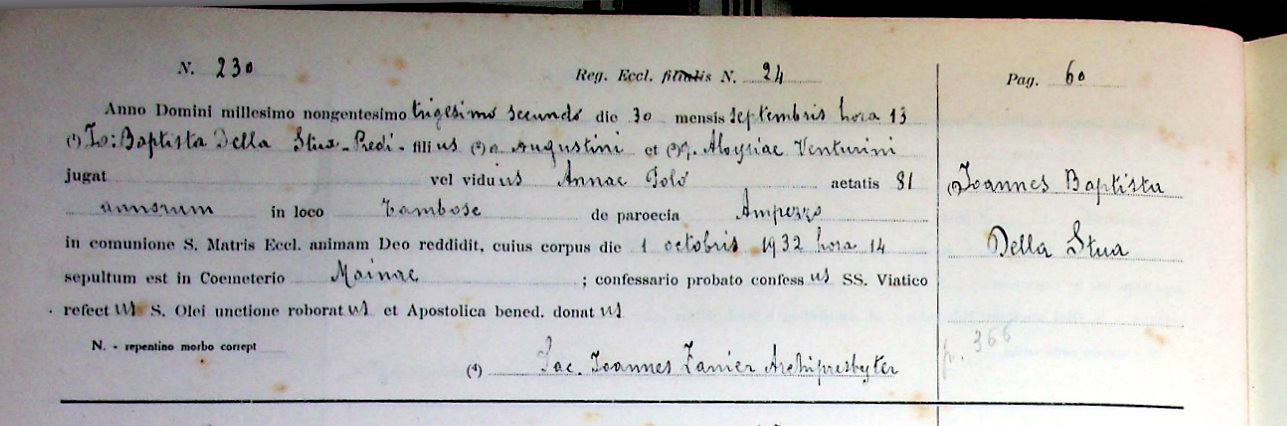 N. 230 Reg. Eccl. filialis N. 24 Pag. 60
Anno Domini millesimo nongentesimo trigesimo secundo die 30 mensis septembris hora 13
(1) Io: Baptista Della Stua - Predi - filius (2) q. Augustini et (3) q. Aloysiae Venturini
jugat vel viduus Annae Polo aetatis 81
annorum in loco Tambose de paroecia Ampezzo
in comunione S. Matris Eccl. animam Deo reddidit, cuius corpus die 1 octobris 1932 hora 14
sepultum est in Coemeterio Mainae ; confessario probato confessus SS. Viatico
refectus S. Olei unctione roboratus et Apostolica bened. donatus
N. - repentino morbo corrept
(4) Sac. Ioannes Zanier Archipresbyter
(1) Joannes Baptista
Della Stua
p. 366